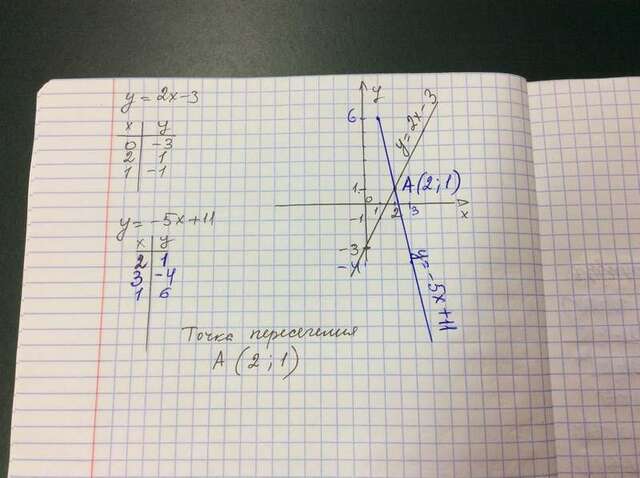 y = 2x-3
x y
0 -3
2 1
1 -1
y = -5x+11
x y
2 1
3 -4
1 6
y
6
y=2x-3
1
A(2;1)
0
1 2 3
x
-1
-3
-4
y=-5x+11
Точка пересечения
A (2;1)